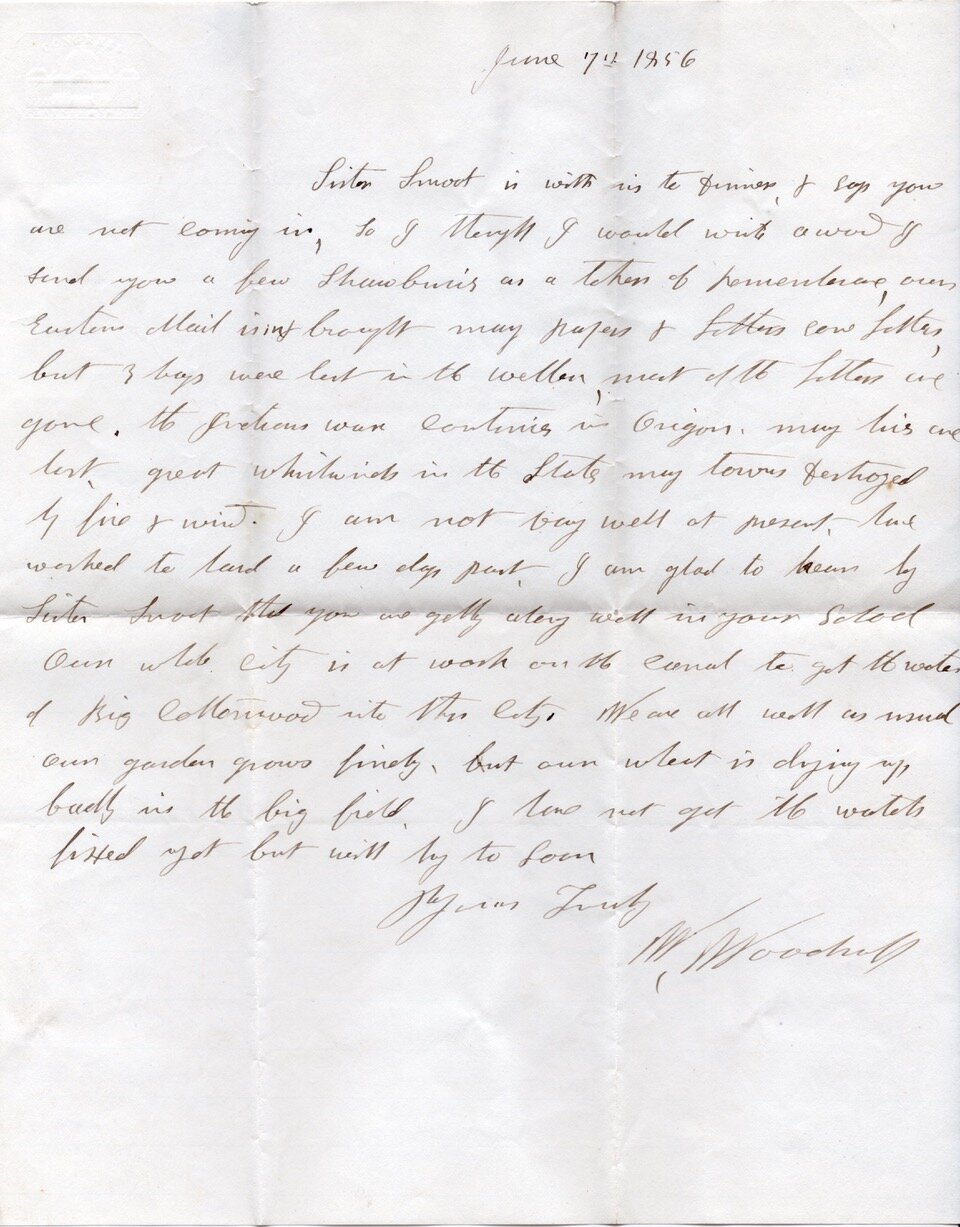 June 7th 1856
Sister Smoot is with us to dinner, & says you
are not coming in, so I thought I would write a word &
send you a few Strawburies as a token of rememberance, our
Eastern Mail is in & brought many papers & letters
but 3 bags were lost in the water, most of the letters are
gone. the Indians war continues in Origon. many lives are
lost, great whirlwinds in the States many towns destroyed
by fire & wind. I am not very well at present, have
worked to hard a few days past, I am glad to hear by
Sister Smoot that you are getting along well in your School
Our whole City is at work on the canal to get the water
of Big Cottonwood into this City. We are all well as usual
our garden grows finely, but our wheat is drying up
badly in the big field. I have not got the watch
fixed yet but will try to soon
Yours Truly
W, Woodruff